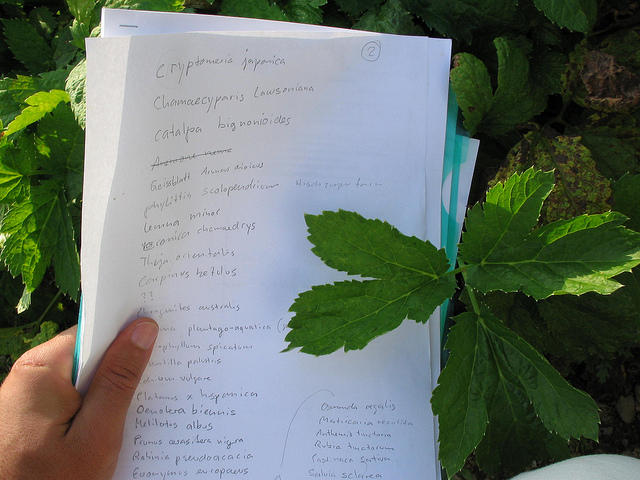 2
Cryptomeria japonica
Chamaecyparis Lawsoniana
catalpa bignonioides
Geissblatt Aruncus dioicus
phyllitis scolopendrium
Lemna minor
veronica chamaedrys
Thuja orientalis
Carpinus betulus
??
Phragmites australis
plantago-aquatica
spicatum
palustris
vulgare
Platanus x hispanica
Oenotera biennis
Melilotus albus
Prunus cerasifera nigra
Robinia pseudoacacia
Euonymus europaeus
Osmunda regalis
Matricaria recutita
Anthemis tinctoria
Rubia tinctorum
Pastinaca sativa
Salvia sclarea